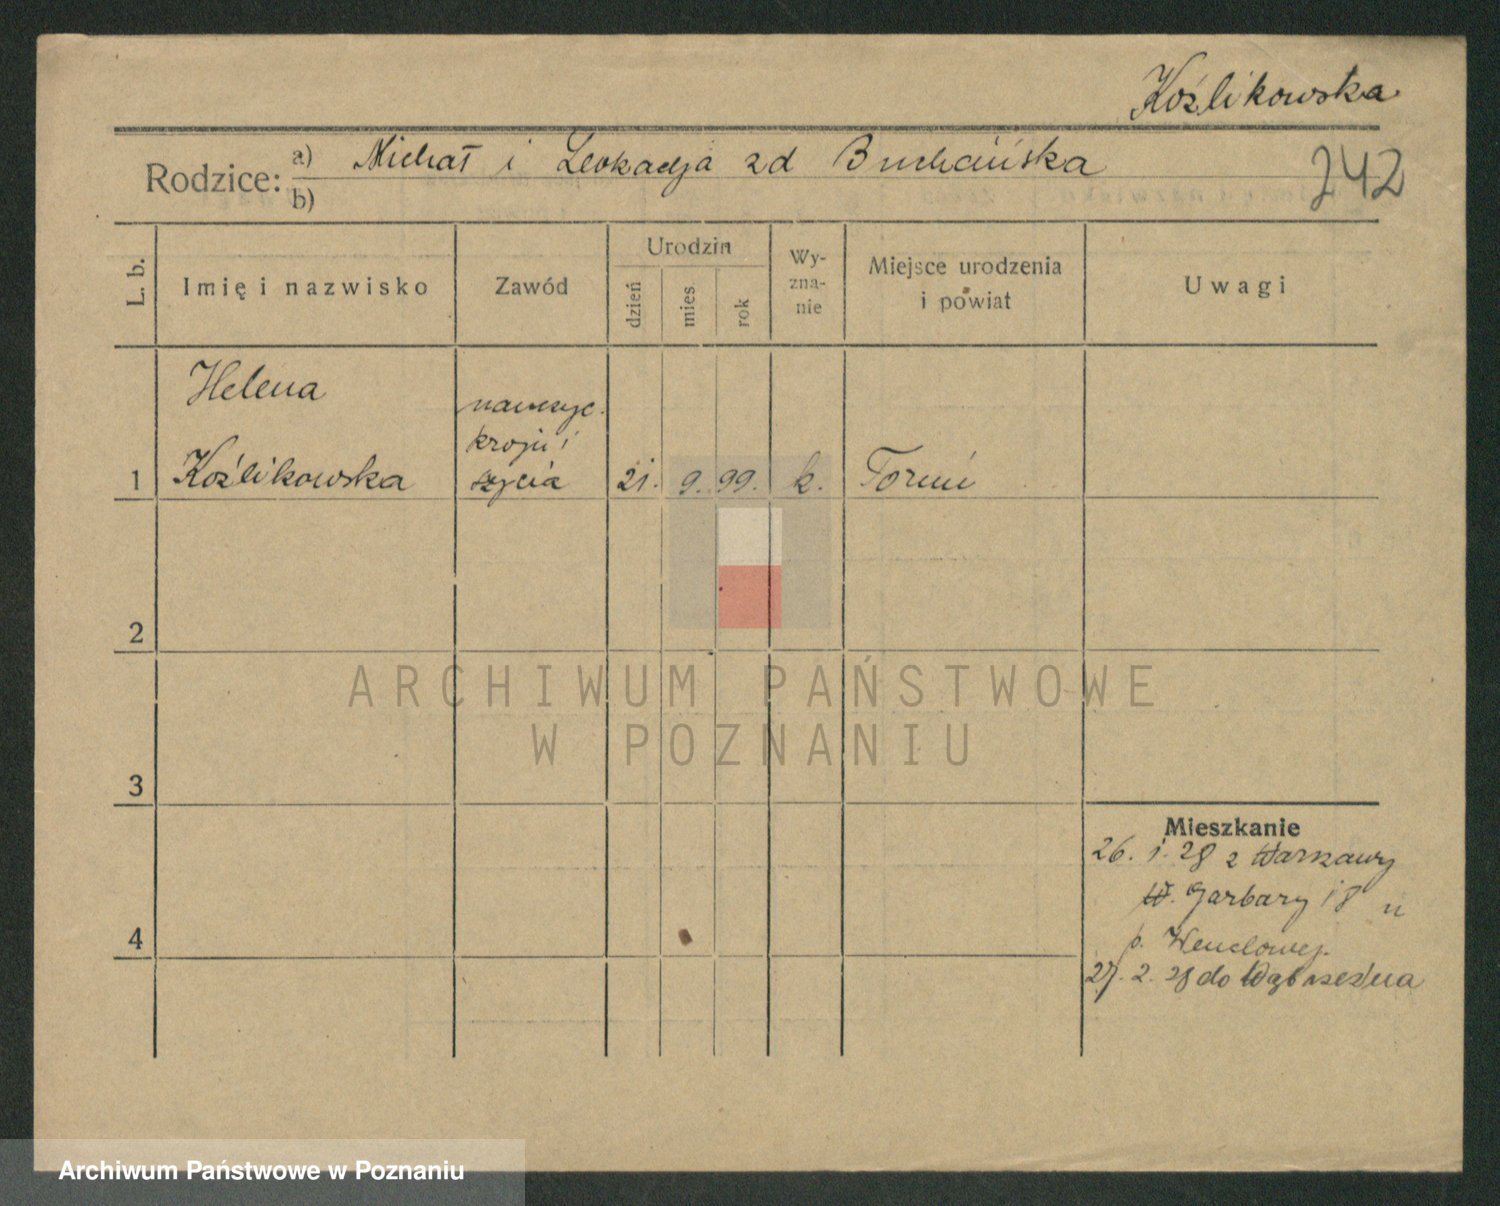 Koźlikowska
Rodzice: a) Michał i Leokadja zd Buchcińska
b)
242
L. b.
Imię i nazwisko
Zawód
Urodzin
dzień
mies
rok
Wy-
zna-
nie
Miejsce urodzenia
i powiat
Uwagi
Helena
nauczyc.
kroju i
1 Koźlikowska szycia 21. 9. 99. k. Toruń
2
3
4
Mieszkanie
26. 1. 28 z Warszawy
W. Garbary 18 u
p. Wenclowej.
27. 2. 28 do Wąbrzeźna
ARCHIWUM PAŃSTWOWE
W POZNANIU
Archiwum Państwowe w Poznaniu